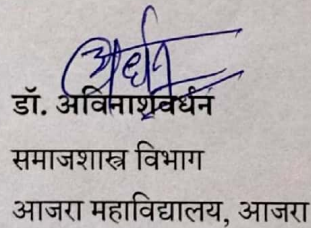 डॉ. अविनाशवर्धन
समाजशास्त्र विभाग
आजरा महाविद्यालय, आजरा